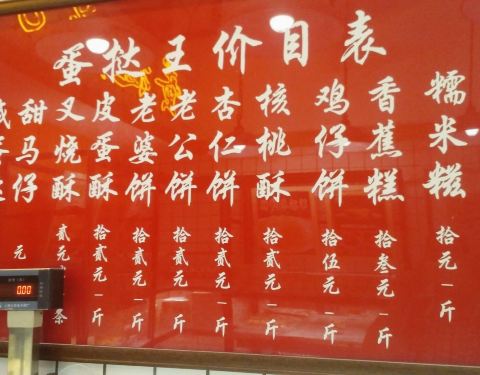 蛋挞王价目表
糯米糍
拾元一斤
香蕉糕
拾叁元一斤
鸡仔饼
拾伍元一斤
核桃酥
拾贰元一斤
杏仁饼
拾贰元一斤
老公饼
拾贰元一斤
老婆饼
拾贰元一斤
皮蛋酥
拾贰元一斤
叉烧酥
贰元
条
甜马仔
元
咸
0.00